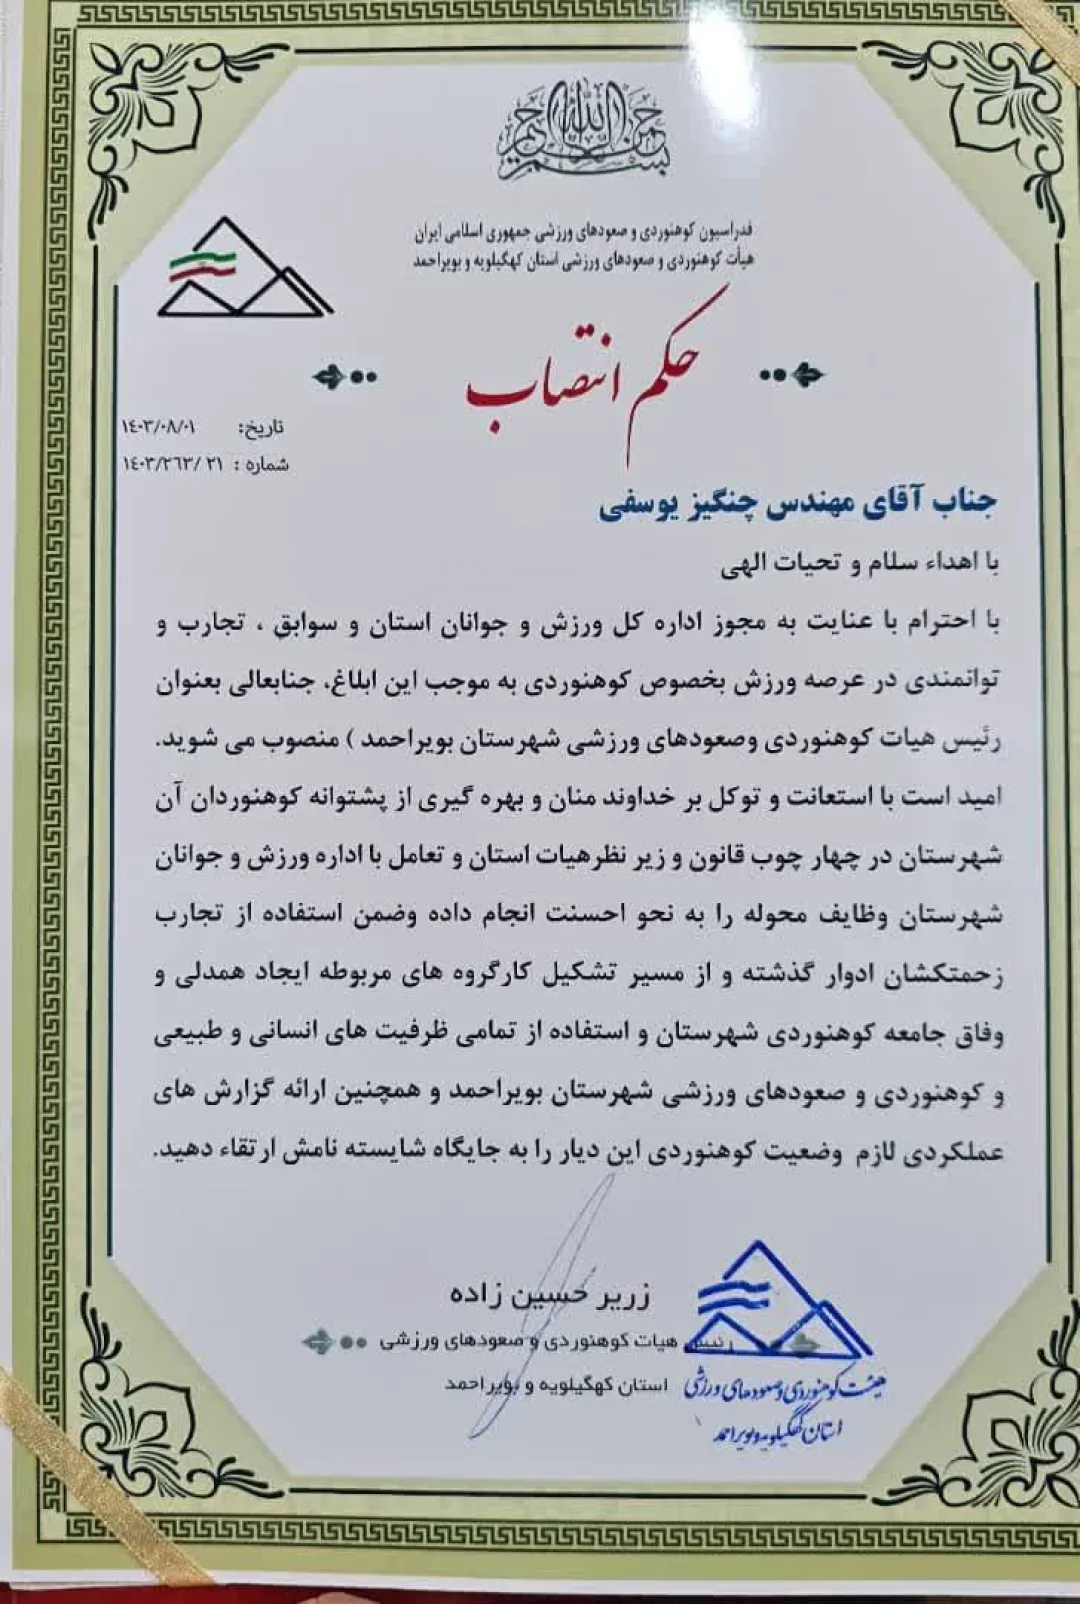 بسم الله الرحمن الرحیم
فدراسیون کوهنوردی و صعودهای ورزشی جمهوری اسلامی ایران
هیأت کوهنوردی و صعودهای ورزشی استان کهگیلویه و بویراحمد
حکم انتصاب
تاریخ: ۱۴۰۳/۰۸/۰۱
شماره : ۲۱ /۱۴۰۳/۲۶۳
جناب آقای مهندس چنگیز یوسفی
با اهداء سلام و تحیات الهی
با احترام با عنایت به مجوز اداره کل ورزش و جوانان استان و سوابق ، تجارب و
توانمندی در عرصه ورزش بخصوص کوهنوردی به موجب این ابلاغ، جنابعالی بعنوان
رئیس هیات کوهنوردی وصعودهای ورزشی شهرستان بویراحمد ) منصوب می شوید.
امید است با استعانت و توکل بر خداوند منان و بهره گیری از پشتوانه کوهنوردان آن
شهرستان در چهار چوب قانون و زیر نظرهیات استان و تعامل با اداره ورزش و جوانان
شهرستان وظایف محوله را به نحو احسنت انجام داده وضمن استفاده از تجارب
زحمتکشان ادوار گذشته و از مسیر تشکیل کارگروه های مربوطه ایجاد همدلی و
وفاق جامعه کوهنوردی شهرستان و استفاده از تمامی ظرفیت های انسانی و طبیعی
و کوهنوردی و صعودهای ورزشی شهرستان بویراحمد و همچنین ارائه گزارش های
عملکردی لازم وضعیت کوهنوردی این دیار را به جایگاه شایسته نامش ارتقاء دهید.
زریر حسین زاده
رئیس هیات کوهنوردی و صعودهای ورزشی
استان کهگیلویه و بویراحمد
هیئت کوهنوردی و صعودهای ورزشی
استان کهگیلویه و بویراحمد